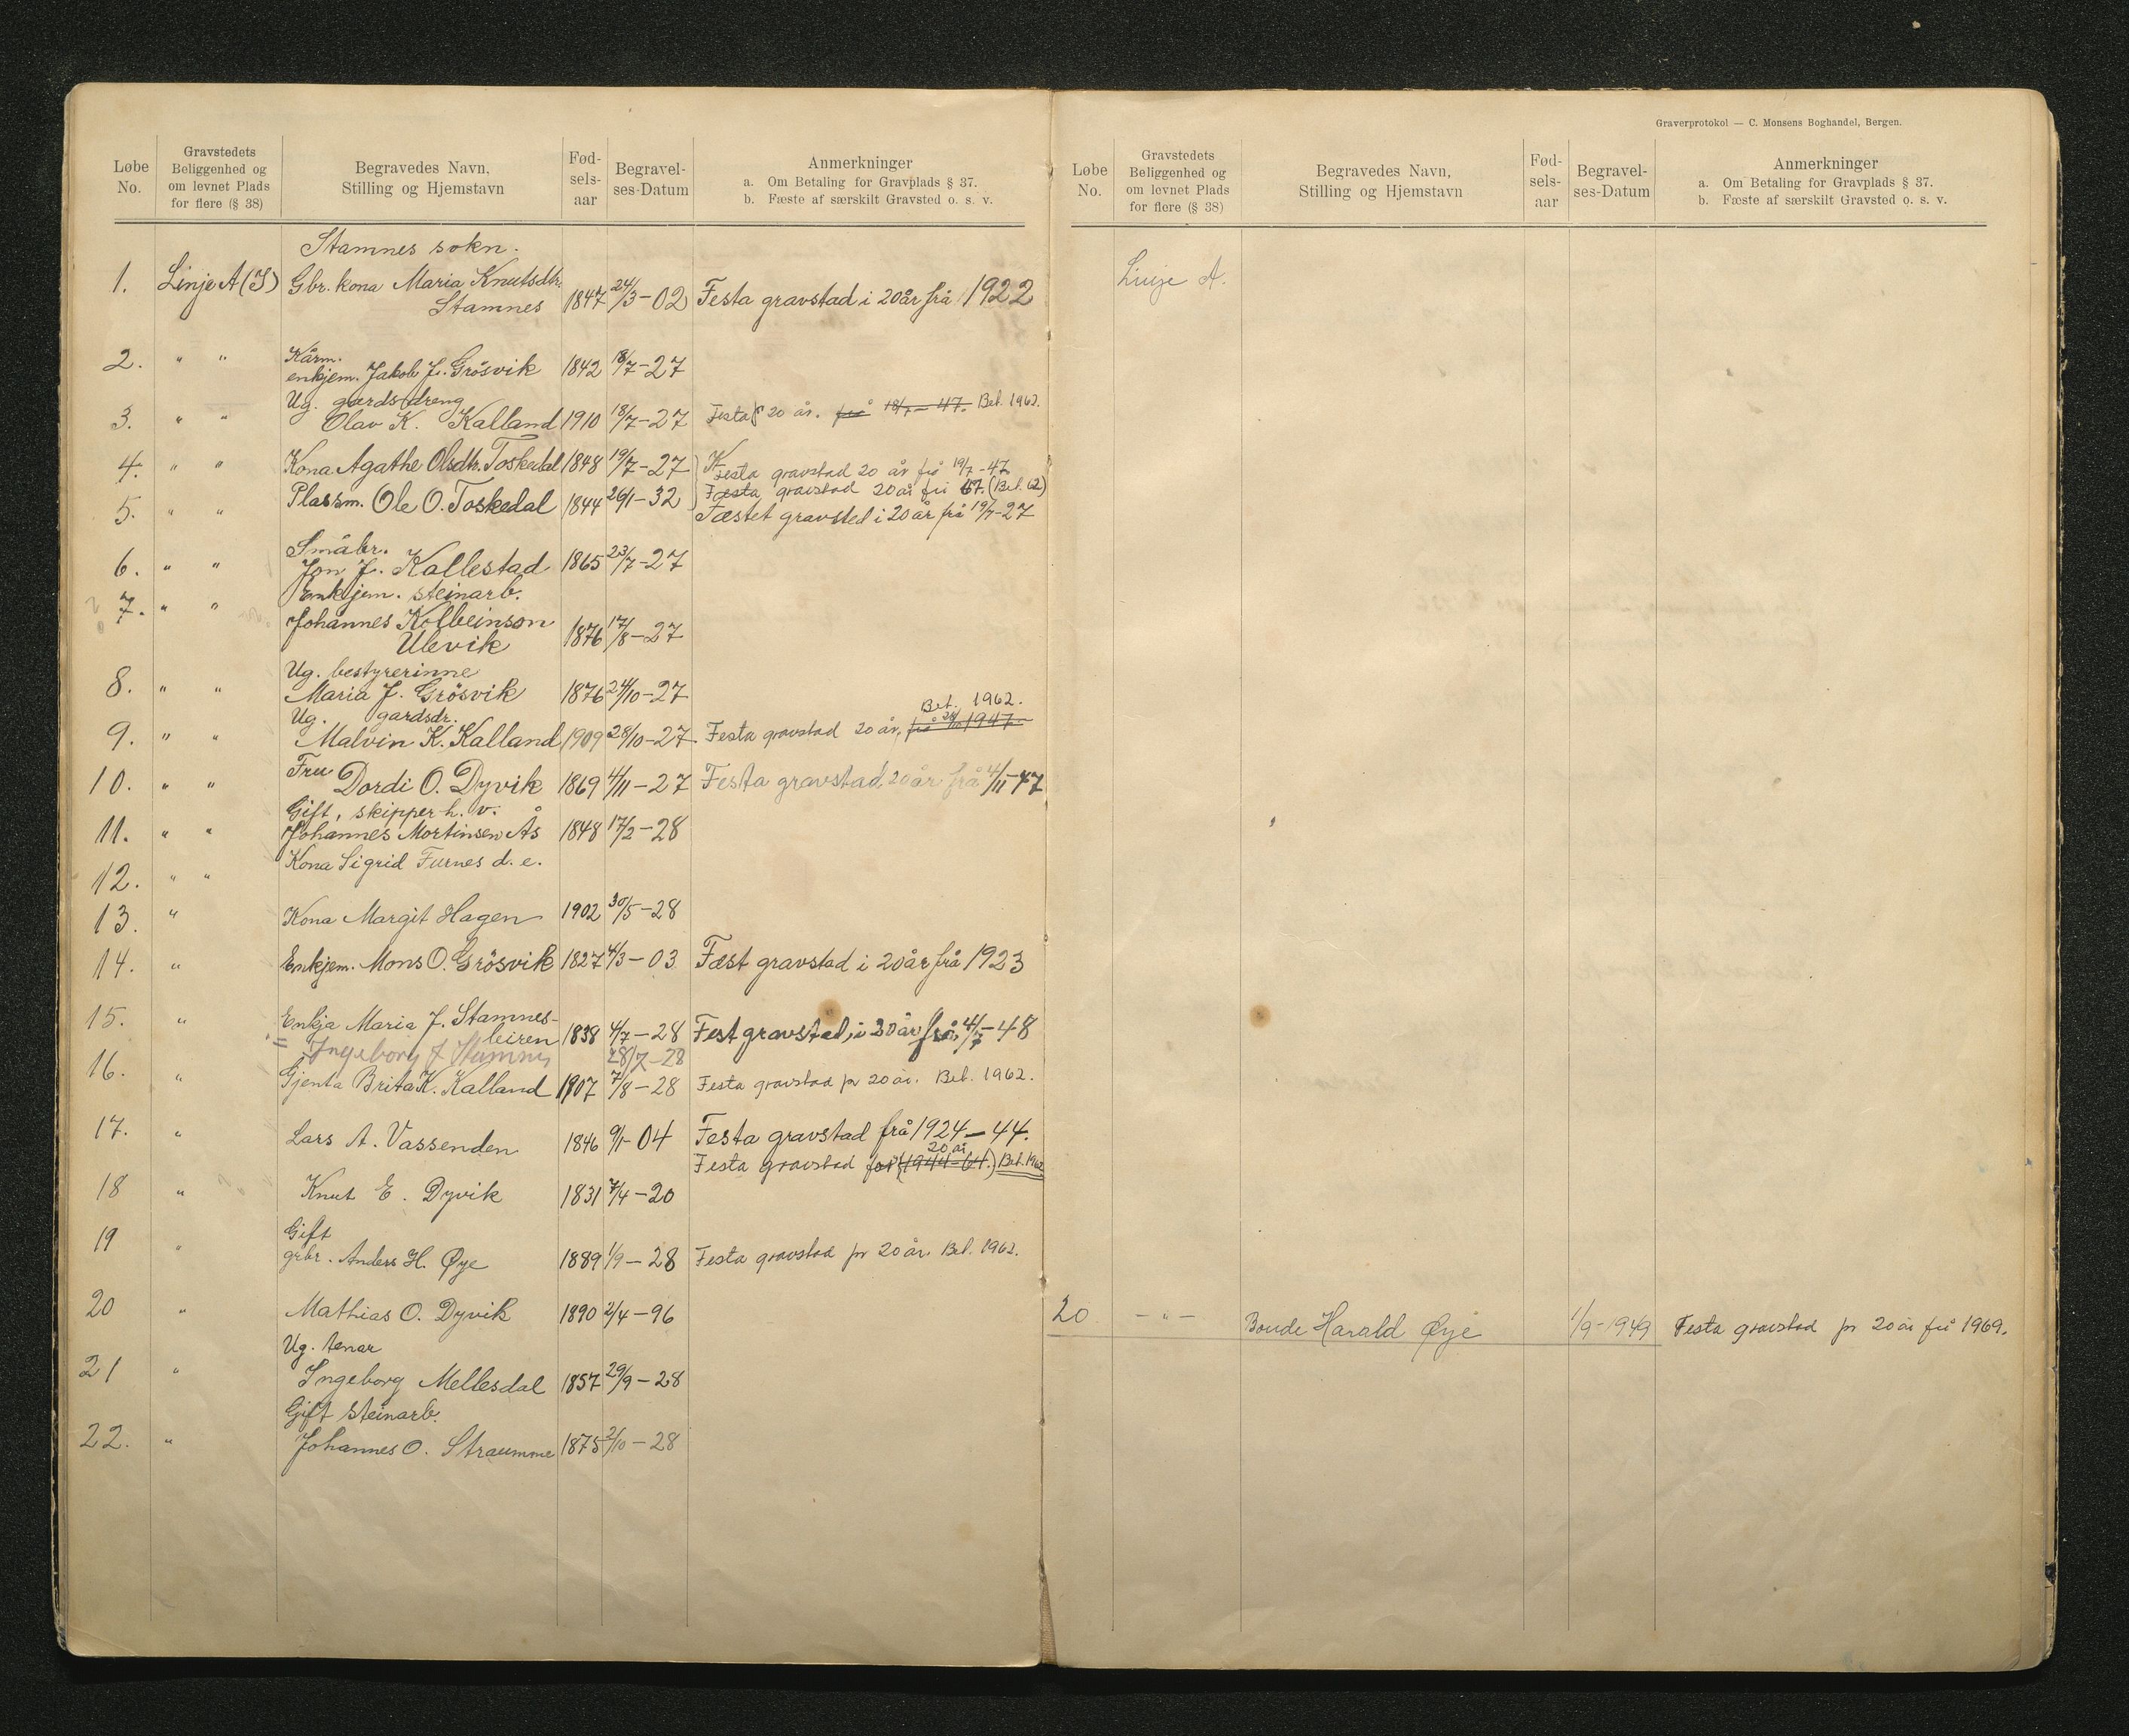 Løbe No.
Gravstedets Beliggenhed og om levnet Plads for flere (§ 38)
Begravedes Navn, Stilling og Hjemstavn
Fød-sels-aar
Begravel-ses-Datum
Anmerkninger
a. Om Betaling for Gravplads § 37.
b. Fæste af særskilt Gravsted o. s. v.
Stamnes sokn.
1. Linje A (I) Gbr. kona Maria Knutsdtr.
Stamnes 1847 24/3-02 Festa gravstad i 20 år frå 1922
2. " " Kårm.
enkjem. Jakob J. Grösvik 1842 18/7-27
Ug. gardsdreng
3. " " Olav K. Kalland 1910 18/7-27 Festa 20 år. frå 18/7-47. Bet. 1962.
4. " " Kona Agathe Olsdtr. Toskedal 1848 19/7-27 Festa gravstad 20 år frå 19/7-47
Festa gravstad 20 år frå 67. (Bet. 62)
5. " " Plassm. Ole O. Toskedal 1844 26/1-32 Fæstet gravsted i 20 år frå 19/7-27
Småbr.
6. " " Jon J. Kallestad 1865 23/7-27
Enkjem. steinarb.
7. " " Johannes Kolbeinson
Ulevik 1876 17/8-27
Ug. bestyrerinne
8. " " Maria J. Grösvik 1876 24/10-27
Ug. gardsdr. Bet. 1962.
9. " " Malvin K. Kalland 1909 28/10-27 Festa gravstad 20 år, frå 28/10 1947
10. " " Fru Dordi O. Dyvik 1869 4/11-27 Festa gravstad 20 år frå 4/11-47
Gift, skipper h. v.
11. " " Johannes Mortinsen Ås 1848 17/2-28
12. " " Kona Sigrid Furnes d. e.
13. " Kona Margit Hagen 1902 30/5-28
14. " Enkjem. Mons O. Grösvik 1827 4/3-03 Fæst gravstad i 20 år frå 1923
15. " Enkja Maria J. Stamnes-
leiren 1838 4/7-28 Fest gravstad, i 20 år frå 4/7-48
= Ingeborg J Stamnes 28/7-28
16. " Gjenta Brita K. Kalland 1907 7/8-28 Festa gravstad pr 20 år. Bet. 1962.
17. " Lars A. Vassenden 1846 9/1-04 Festa gravstad frå 1924-44.
20 år
Festa gravstad for (1944-64.) Bet. 1962
18 " Knut E. Dyvik 1831 7/4-20
Gift
19 " grbr. Anders H. Øye 1889 1/9-28 Festa gravstad pr 20 år. Bet. 1962.
20 " Mathias O. Dyvik 1890 2/4-96
Ug. tenar
21 " Ingeborg Mellesdal 1857 29/9-28
Gift steinarb.
22. " Johannes O. Straumme 1875 2/10-28
Graverprotokol — C. Monsens Boghandel, Bergen.
Løbe No.
Gravstedets Beliggenhed og om levnet Plads for flere (§ 38)
Begravedes Navn, Stilling og Hjemstavn
Fød-sels-aar
Begravel-ses-Datum
Anmerkninger
a. Om Betaling for Gravplads § 37.
b. Fæste af særskilt Gravsted o. s. v.
Linje A.
20 - " - Bonde Harald Øye 1/9-1949 Festa gravstad pr 20 år frå 1969.